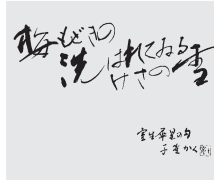 梅もどきの
洗はれてゐる
けさの雪
室生犀星の句
かく